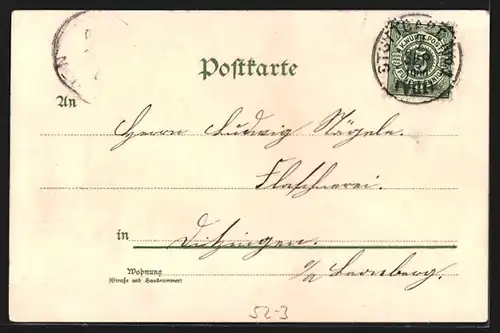 Postkarte
STUTTGART
An
Herrn Ludwig Nägele.
Flaschnerei.
in Ditzingen.
Wohnung
(Straße und Hausnummer)
o/a Leonberg.
52-3